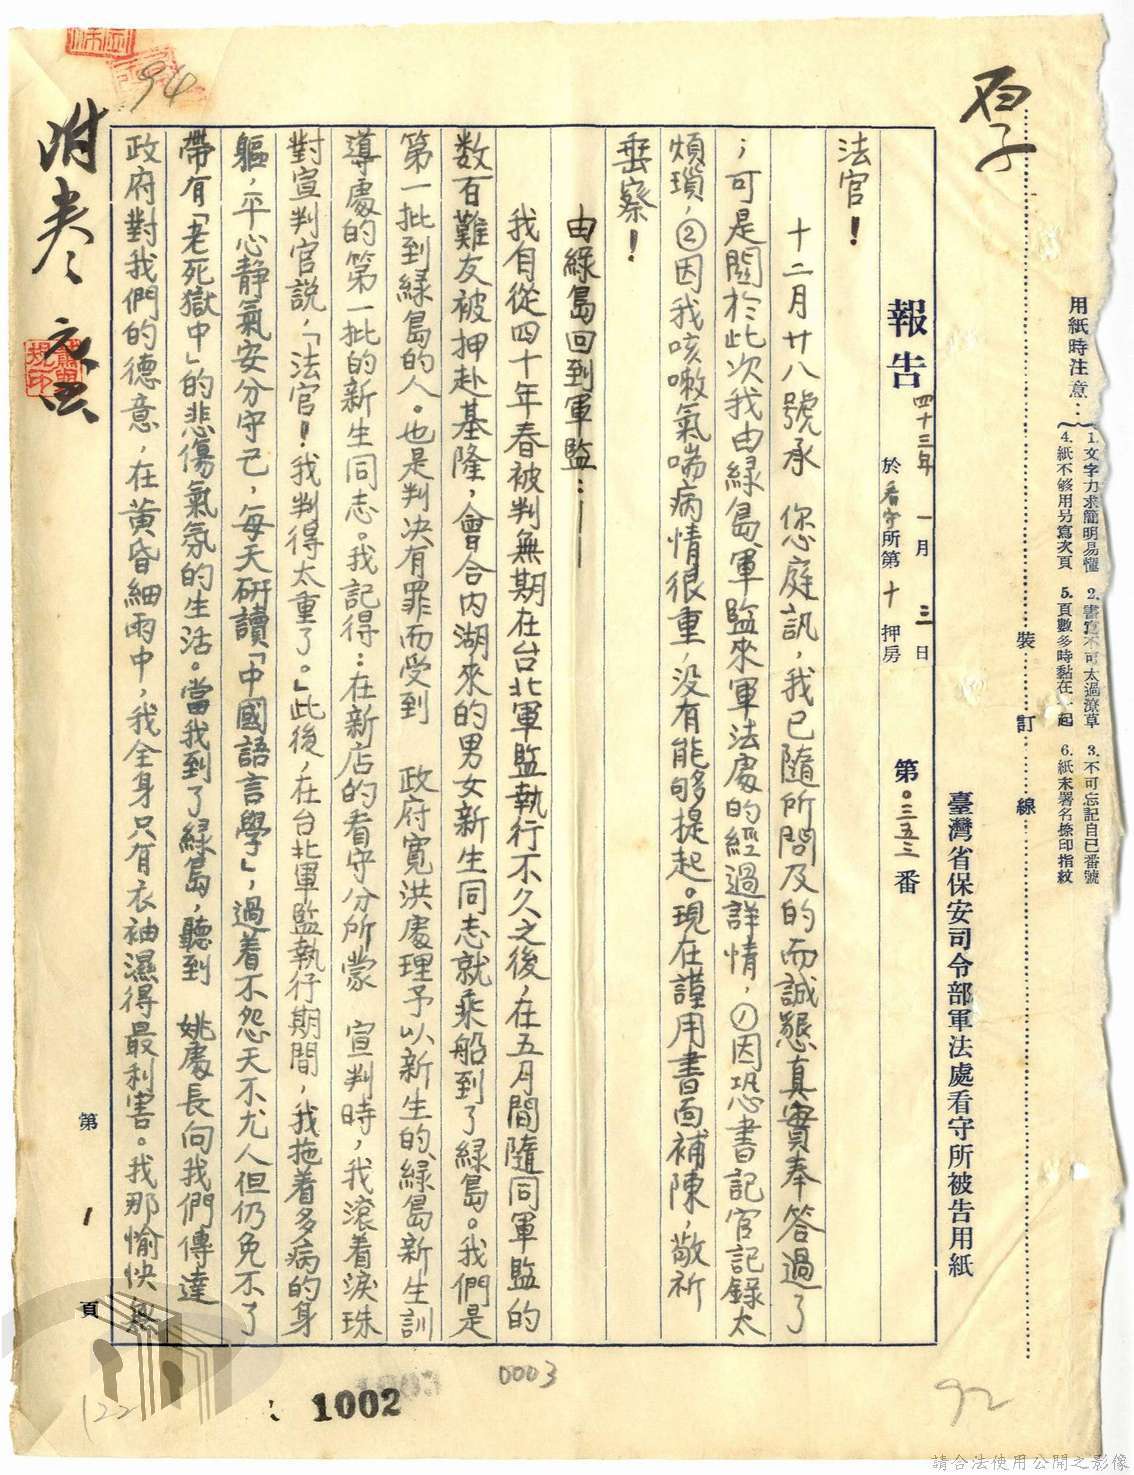 用紙時注意：
1. 文字力求簡明易懂　2. 書寫不可太過潦草　3. 不可忘記自己番號
4. 紙不够用另寫次頁　5. 頁數多時黏在一起　6. 紙末署名捺印指紋
裝訂線
臺灣省保安司令部軍法處看守所被告用紙
報告 四十三年一月三日
於看守所第十押房
第〇三五三番
法官！
十二月廿八號承　您庭訊，我已隨所問及的而誠懇真實奉答過了
；可是關於此次我由綠島軍監來軍法處的經過詳情，①因恐書記官記錄太
煩瑣，②因我咳嗽氣喘病情很重，没有能够提起。現在謹用書面補陳，敬祈
垂察！
由綠島回到軍監：——
我自從四十年春被判無期在台北軍監執行不久之後，在五月間隨同軍監的
数百難友被押赴基隆，會合內湖來的男女新生同志就乘船到了綠島。我們是
第一批到綠島的人。也是判決有罪而受到　政府寬洪處理予以新生的綠島新生訓
導處的第一批的新生同志。我記得：在新店的看守分所蒙　宣判時，我滾着淚珠
對宣判官説，「法官！我判得太重了。」此後，在台北軍監執行期間，我拖着多病的身
軀，平心靜氣安分守己，每天研讀「中國語言學」，過着不怨天不尤人但仍免不了
帶有「老死獄中」的悲傷氣氛的生活。當我到了綠島，聽到　姚處長向我們傳達
政府對我們的德意，在黃昏細雨中，我全身只有衣袖濕得最利害。我那愉快無
第1頁
附卷
94
92
122
0003
1002
請合法使用公開之影像